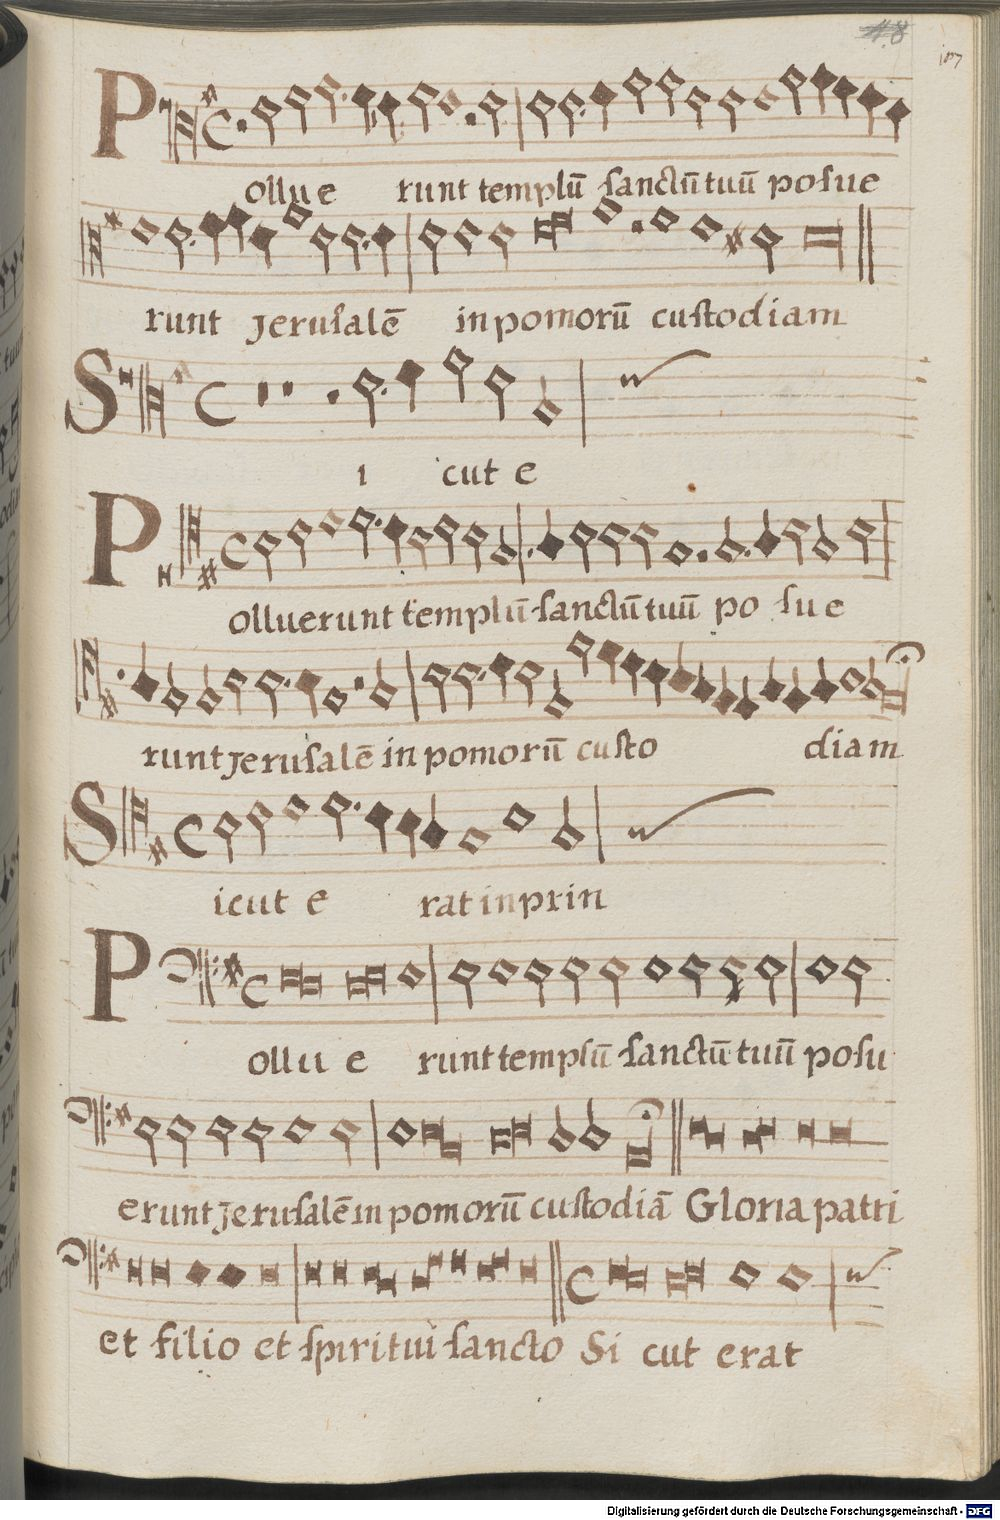 48
107
P
ollu e runt templū ſanctū tuū poſue
runt Jeruſalē in pomorū cuſtodiam
S
i cut e
P
olluerunt templū ſanctū tuū po ſu e
runt Jeruſalē in pomorū cuſto diam
S
icut e rat in prin
P
ollu e runt templū ſanctū tuū poſu
erunt Jeruſalē in pomorū cuſtodiā Gloria patri
et filio et ſpiritui ſancto Si cut erat
Digitalisierung gefördert durch die Deutsche Forschungsgemeinschaft - DFG